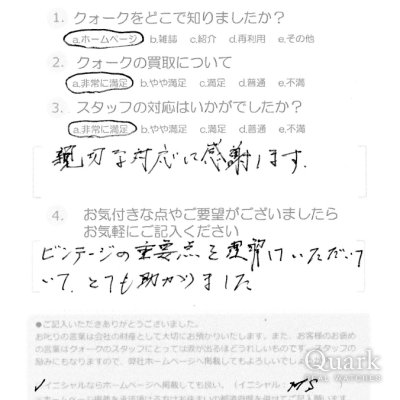 1. クォークをどこで知りましたか？
a.ホームページ b.雑誌 c.紹介 d.再利用 e.その他
2. クォークの買取について
a.非常に満足 b.やや満足 c.満足 d.普通 e.不満
3. スタッフの対応はいかがでしたか？
a.非常に満足 b.やや満足 c.満足 d.普通 e.不満
親切な対応に感謝します.
4. お気付きな点やご要望がございましたら
お気軽にご記入ください
ビンテージの重要点を理解していただいて
いて、とても助かりました
●ご記入いただきありがとうございました。
お叱りの言葉は会社の財産として大切にお預かりいたします。また、お客様のお褒め
の言葉はクォークのスタッフにとっては涙が出るほどうれしいものです。スタッフの
励みにもなりますので、弊社ホームページへ掲載してもよろしいでしょ
Quark
REAL WATCHES
✓イニシャルならホームページへ掲載しても良い。（イニシャル： M S